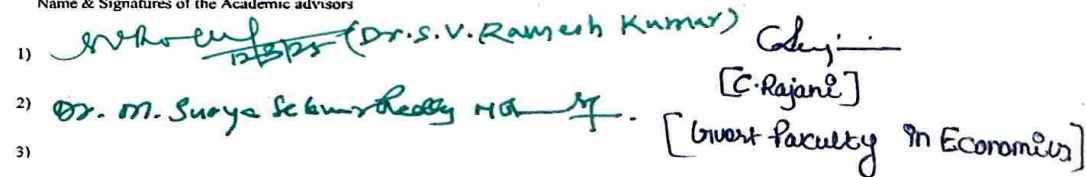 Name & Signatures of the Academic advisors
1) 12/3/25 (Dr.S.V.Ramesh Kumar)
[C.Rajani]
2) Dr. M. Surya Reddy
[Guest Faculty in Economics]
3)